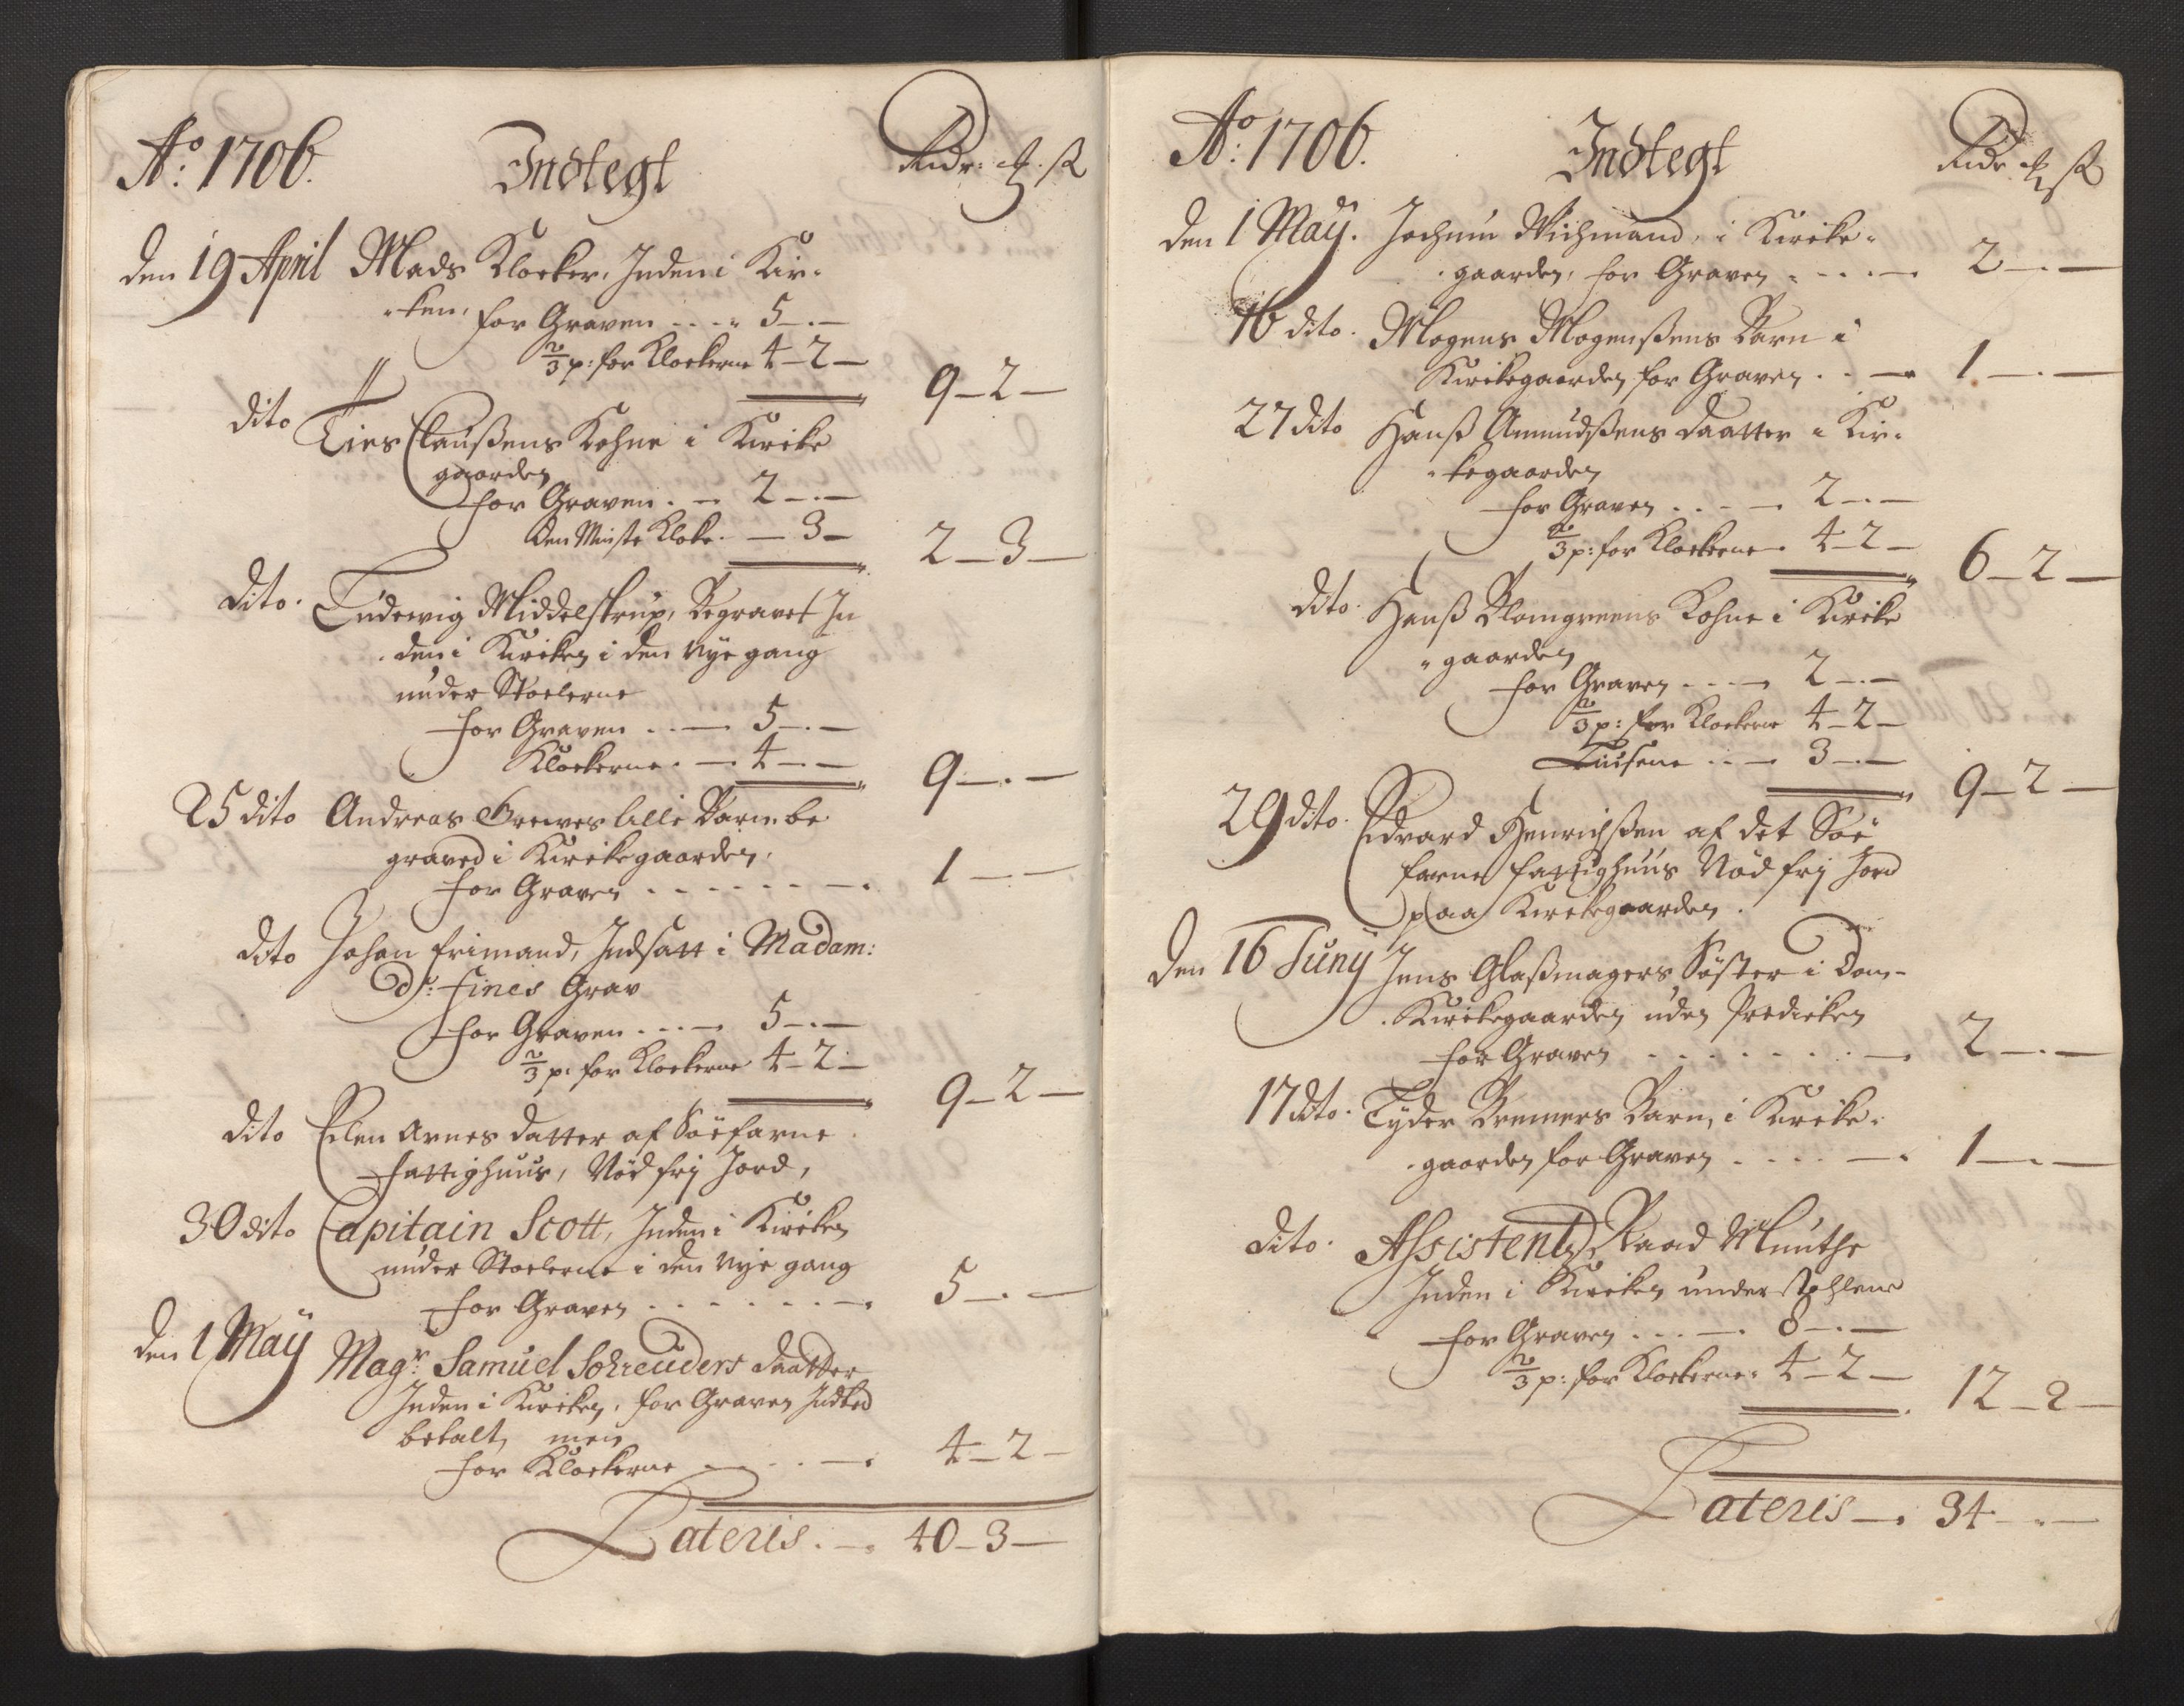 Aº: 1706.
Indtegt
Rdr: ß
den 19 April Mads Klocker, Inden i Kir-
ken, for Graven .... 5 -.-
2/3 p: for Klockerne 4 - 2 -
9 - 2 -
dito Ties Claußens Kohne i Kircke
gaarden
for Graven . - 2 -.-
Den Minste Kloke. - 3 -
2 - 3 -
dito. Ludewig Middelstrup, Begravet In
den i Kircken i den Nye gang
under Stoelerne
for Graven .. - 5 -.-
Klockerne . - 4 -.-
9 -.-
25 dito Andreas Greves lille Barn be
graved i Kirckegaarden,
for Graven ....... - 1 - -
dito Johan frimand, Indsatt i Madam:
d': fines Grav
for Graven ... - 5 -.-
2/3 p: for Klockerne 4 - 2 -
9 - 2 -
dito Eilen Arnes datter af Söefarne
fattighuus, Nöd frj Jord,
30 dito Capitain Scott, Inden i Kircken
under Stoelerne i den Nye gang
for Graven ....... - 5 -.-
den 1 Maÿ Magr: Samuel Schreuders daatter
Inden i Kircken, for Graven
betalt, men
for Klockerne - .. - 4 - 2 -
Lateris . - 40 - 3 -
Aº: 1706.
Indtegt
Rdr ß
den 1 Maÿ. Jochum Wichmand, i Kircke-
gaarden, for Graven .... - 2 -.-
16 dito. Mogens Mogenßens Barn i
Kirckegaarden for Graven .. - 1 -.-
27 dito Hanß Amundßens daatter i Kir-
kegaarden
for Graven .... 2 -.-
2/3 p: for Klockerne. 4 - 2 -
6 - 2 -
dito. Hanß Blomgreens Kohne i Kircke
gaarden
for Graven ... - 2 -.-
2/3 p: for Klockerne 4 - 2 -
Liusene .. - 3 -.-
9 - 2 -
29 dito. Edvard Henrichßen af det Söe
farne fattighuus Nöd frj Jord
paa Kirckegaarden.
den 16 Junÿ Jens Glaßmagers Söster i Dom-
Kirckegaarden uden Predicken
for Graven ....... - 2 -.-
17 dito. Tÿder Bremers Barn, i Kircke-
gaarden for Graven .... - 1 -.-
dito. Assistentz Raad Munthe
Inden i Kircken under Stohlene
for Graven ... - 8 -.-
2/3 p: for Klockerne: 4 - 2 -
12 - 2 -
Lateris - 34 -.-